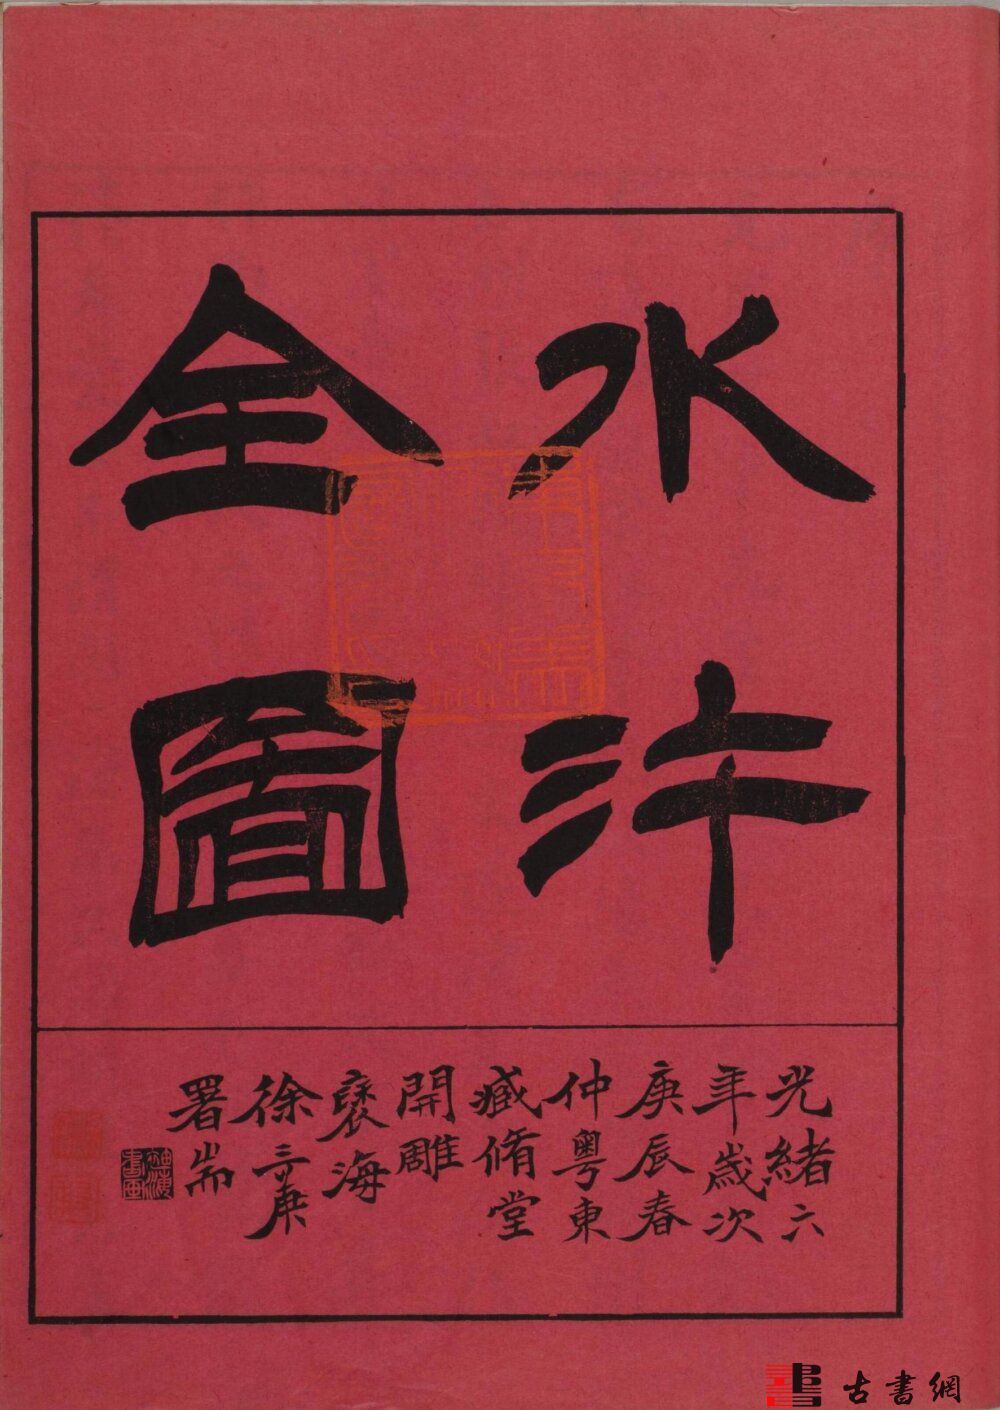 水汻
全圖
光緒六
年歲次
庚辰春
仲粵東
臧脩堂
開雕
褒海
徐三庚
署耑
古書網